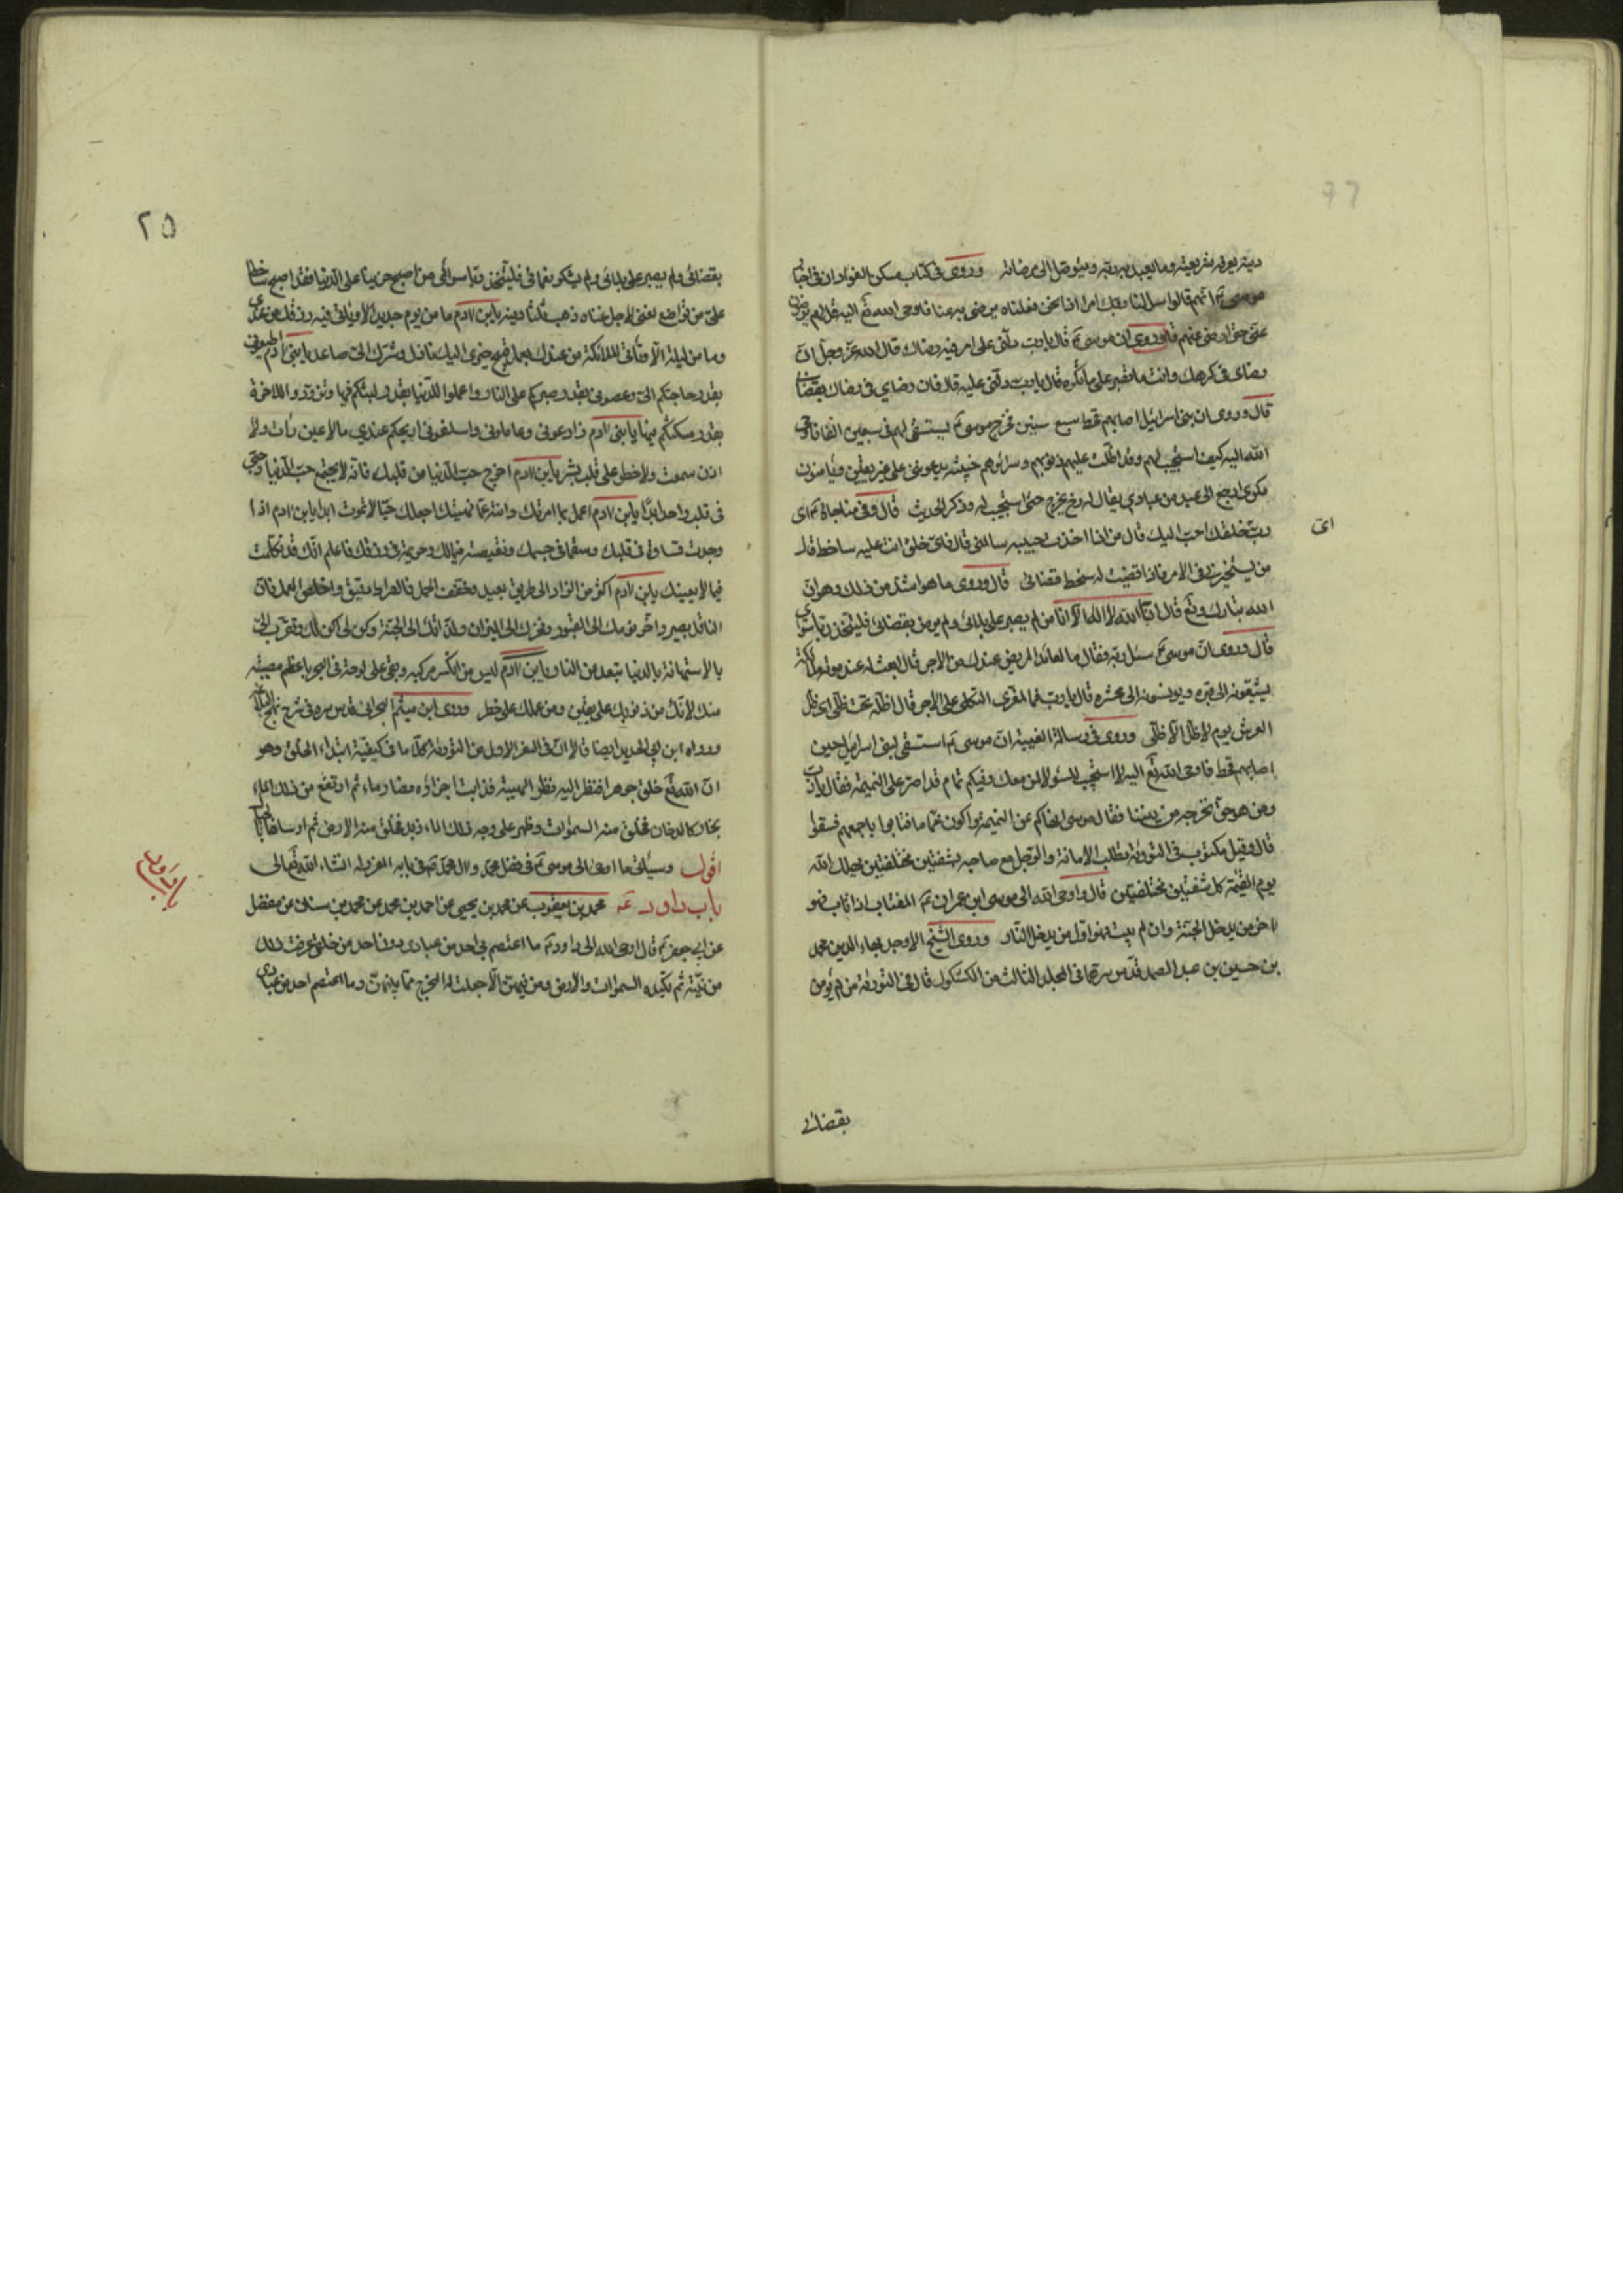 دينه يعرف شريعته وما يعبد به ربه ويتوصل الى مرضاته وروى فى كتاب مسكن الفؤاد ان فى اخبار
موسى ع انهم قالوا سل لنا ربك امرا اذا نحن فعلناه يرضى به عنا فاوحى الله تع اليه قل لهم يرضون
عنى حتى ارضى عنهم قال وروى ان موسى ع قال يا رب دلنى على امر فيه رضاك قال الله عز وجل ان
رضاى فى كرهك وانت ما تصبر على ما تكره قال يا رب دلنى عليه قال فان رضاى فى رضاك بقضائى
قال وروى ان بنى اسرائيل اصابهم قحط سبع سنين فخرج موسى ع يستسقى لهم فى سبعين الفا فاوحى
الله اليه كيف استجيب لهم وقد اظلت عليهم ذنوبهم وسرائرهم خبيثة يدعوننى على غير يقين ويأمنون
مكرى ارجع الى عبد من عبادى يقال له برخ يخرج حتى استجيب له وذكر الحديث قال وفى مناجاة موسى ع اى
اى
رب خلقك احب اليك قال من اذا اخذت حبيبه سالمنى قال فاى خلق انت عليه ساخط قال
من يستخيرنى فى الامر فاذا قضيت له سخط قضائى قال وروى ما هو اشد من ذلك وهو ان
الله تبارك وتع قال انا الله لا اله الا انا من لم يصبر على بلائى ولم يرض بقضائى فليتخذ ربا سوائى
قال وروى ان موسى ع سئل ربه فقال ما لعائد المريض عندك من الاجر قال ابعث له عند موته ملائكة
يشيعونه الى قبره ويونسونه الى محشره قال يا رب فما لمعزى الثكلى من الاجر قال اظله تحت ظلى اى ظل
العرش يوم لا ظل الا ظلى وروى فى رسالة الغيبة ان موسى ع استسقى لبنى اسرائيل حين
اصابهم قحط فاوحى الله تع اليه لا استجيب لك ولا لمن معك وفيكم نمام قد اصر على النميمة فقال يا رب
ومن هو حتى نخرجه من بيننا فقال يا موسى انهاكم عن النميمة واكون نماما فتابوا باجمعهم فسقوا
قال وقيل مكتوب فى التورية بطلب الامانة والرجل مع صاحبه بشفتين مختلفتين يهلك الله
يوم القيمة كل شفتين مختلفتين قال واوحى الله الى موسى ابن عمران ع المغتاب اذا تاب فهو
اخر من يدخل الجنة وان لم يتب فهو اول من يدخل النار وروى الشيخ الاوحد بهاء الدين محمد
بن حسين بن عبد الصمد قدس سرهما فى المجلد الثالث من الكشكول قال فى التورية من لم يؤمن
بقضائى
٢٥
بقضائى ولم يصبر على بلائى ولم يشكر نعمائى فليتخذ ربا سوائى من اصبح حزينا على الدنيا فقد اصبح ساخطا
على من تواضع لغنى لاجل غناه ذهب ثلثا دينه يا بن ادم ما من يوم جديد الا وياتى فيه رزقك من عندى
وما من ليلة الا وتاتى الملائكة من عندك بعمل قبيح خيرى اليك نازل وشرك الى صاعد يا بنى ادم اطيعونى
بقدر حاجتكم الى واعصونى بقدر صبركم على النار واعملوا للدنيا بقدر لبثكم فيها وتزودوا للاخرة
بقدر مكثكم فيها يا بنى ادم زارعونى وعاملونى واسلفونى اربحكم عندى ما لا عين رأت ولا
اذن سمعت ولا خطر على قلب بشر يا بن ادم اخرج حب الدنيا من قلبك فانه لا يجتمع حب الدنيا وحبى
فى قلب واحد ابدا يا بن ادم اعمل بما امرتك وانته عما نهيتك اجعلك حيا لا تموت ابدا يا بن ادم اذا
وجدت قساوة فى قلبك وسقما فى جسمك ونقيصة فى مالك وحريمة فى رزقك فاعلم انك قد تكلمت
فيما لا يعنيك يا بن ادم اكثر من الزاد الى طريق بعيد وخفف الحمل فالصراط دقيق واخلص العمل فان
الناقد بصير واخر نومك الى القبور وفخرك الى الميزان ولذاتك الى الجنة وكن لى اكن لك وتقرب الى
بالاستهانة بالدنيا تبعد من النار يا بن ادم ليس من انكسر مركبه وبقى على لوحة فى البحر باعظم مصيبة
منك لانك من ذنوبك على يقين ومن عملك على خطر وروى ابن ميثم البحرانى قدس سره فى شرح نهج البلاغة
ورواه ابن ابى الحديد ايضا قالا ان فى السفر الاول من التورية كلاما فى كيفية ابتداء الخلق وهو
ان الله تع خلق جوهرا فنظر اليه نظر الهيبة فذابت اجزاؤه فصار ماء ثم ارتفع من ذلك الماء
بخار كالدخان فخلق منه السموات وظهر على وجه ذلك الماء زبد فخلق منه الارض ثم ارساها بالجبال
اقول وسيأتى ما اوحى الى موسى ع فى فضل محمد وال محمد ص فى بابه المفرد له انشاء الله تعالى
باب داود ع محمد بن يعقوب عن محمد بن يحيى عن احمد بن محمد عن محمد بن سنان عن مفضل
باب داود
عن ابى جعفر ع قال اوحى الله الى داود ع ما اعتصم بى احد من عبادى دون احد من خلقى عرفت ذلك
من نيته ثم تكيده السموات والارض ومن فيهن الا جعلت له المخرج مما بينهن وما اعتصم احد من عبادى